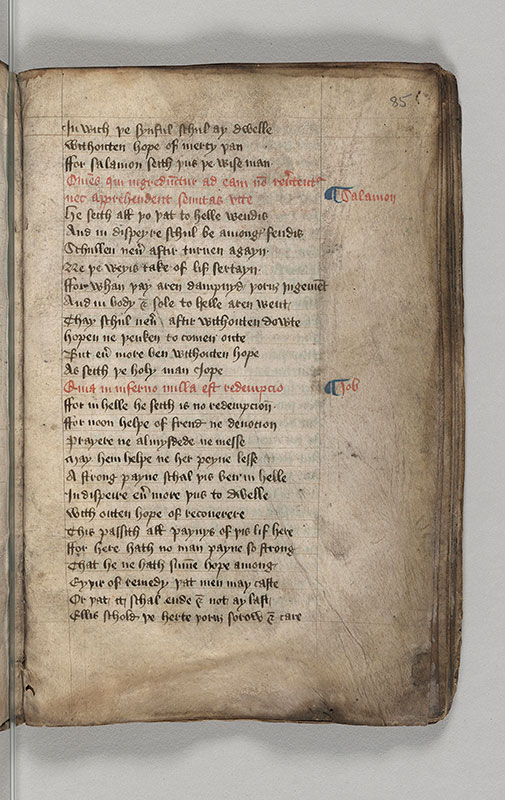 85
In wich þe synful schul ay dwelle
Withouten hope of mercy þan
ffor Salamon seith þus þe wise man
Om̄es qui ingrediūtur ad eam nō reu̓tent̾
nec apprehendent semitas vite
¶Salamon
He seith all þo þat to helle wendis
And in dispeyre schul be among fendis
Schullen neu̓ aftir turnen agayn
Ne þe weyis take of lif sertayn
ffor whan þay aren dampnyd þoruȝ iugemēt
And in body & sole to helle aren went
Thay schul neu̓ aftir withouten dowte
hopen ne þenken to comen oute
But eu̓ more ben withouten hope
As seith þe holy man Jope
Quia in inferno nulla est redempcio
¶Job
ffor in helle he seith is no redempcion
ffor noon helpe of frend ne deuocion
Prayere ne almysdede ne messe
May hem helpe ne her peyne lesse
A strong payne schal þis ben in helle
In dispeire eu̓ more þus to dwelle
With outen hope of recouerere
This passith all paynys of þis lif here
ffor here hath no man payne so strong
That he ne hath sūme hope among
Eyþir of remedy þat men may caste
Or þat it schal ende & not ay last
Ellis schold þe herte þoruȝ sorow & care